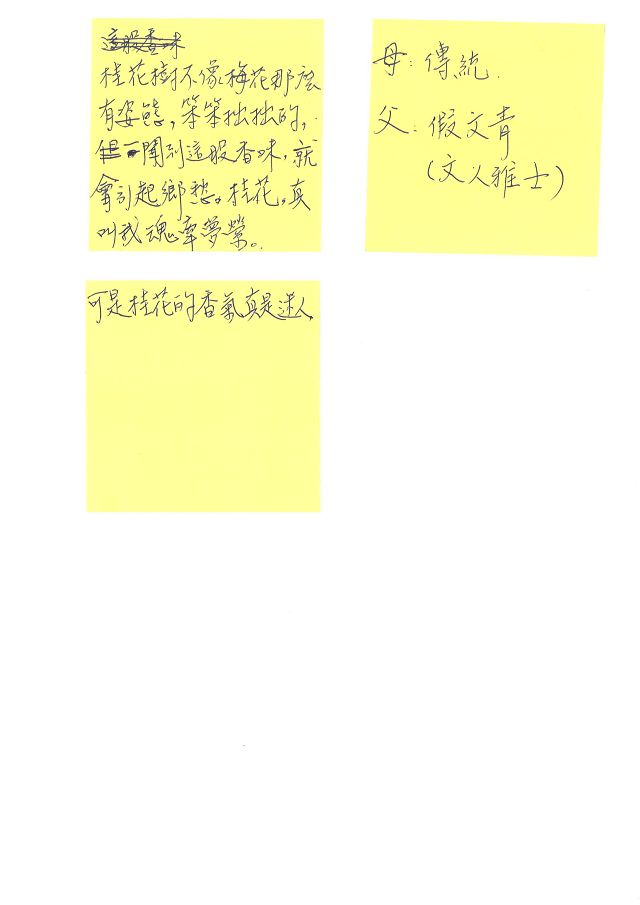 這股香味
桂花樹不像梅花那麼
有姿態,笨笨拙拙的,
但一聞到這股香味,就
會引起鄉愁。桂花,真
叫我魂牽夢縈。
母:傳統.
父:假文青
(文人雅士)
可是桂花的香氣真是迷人